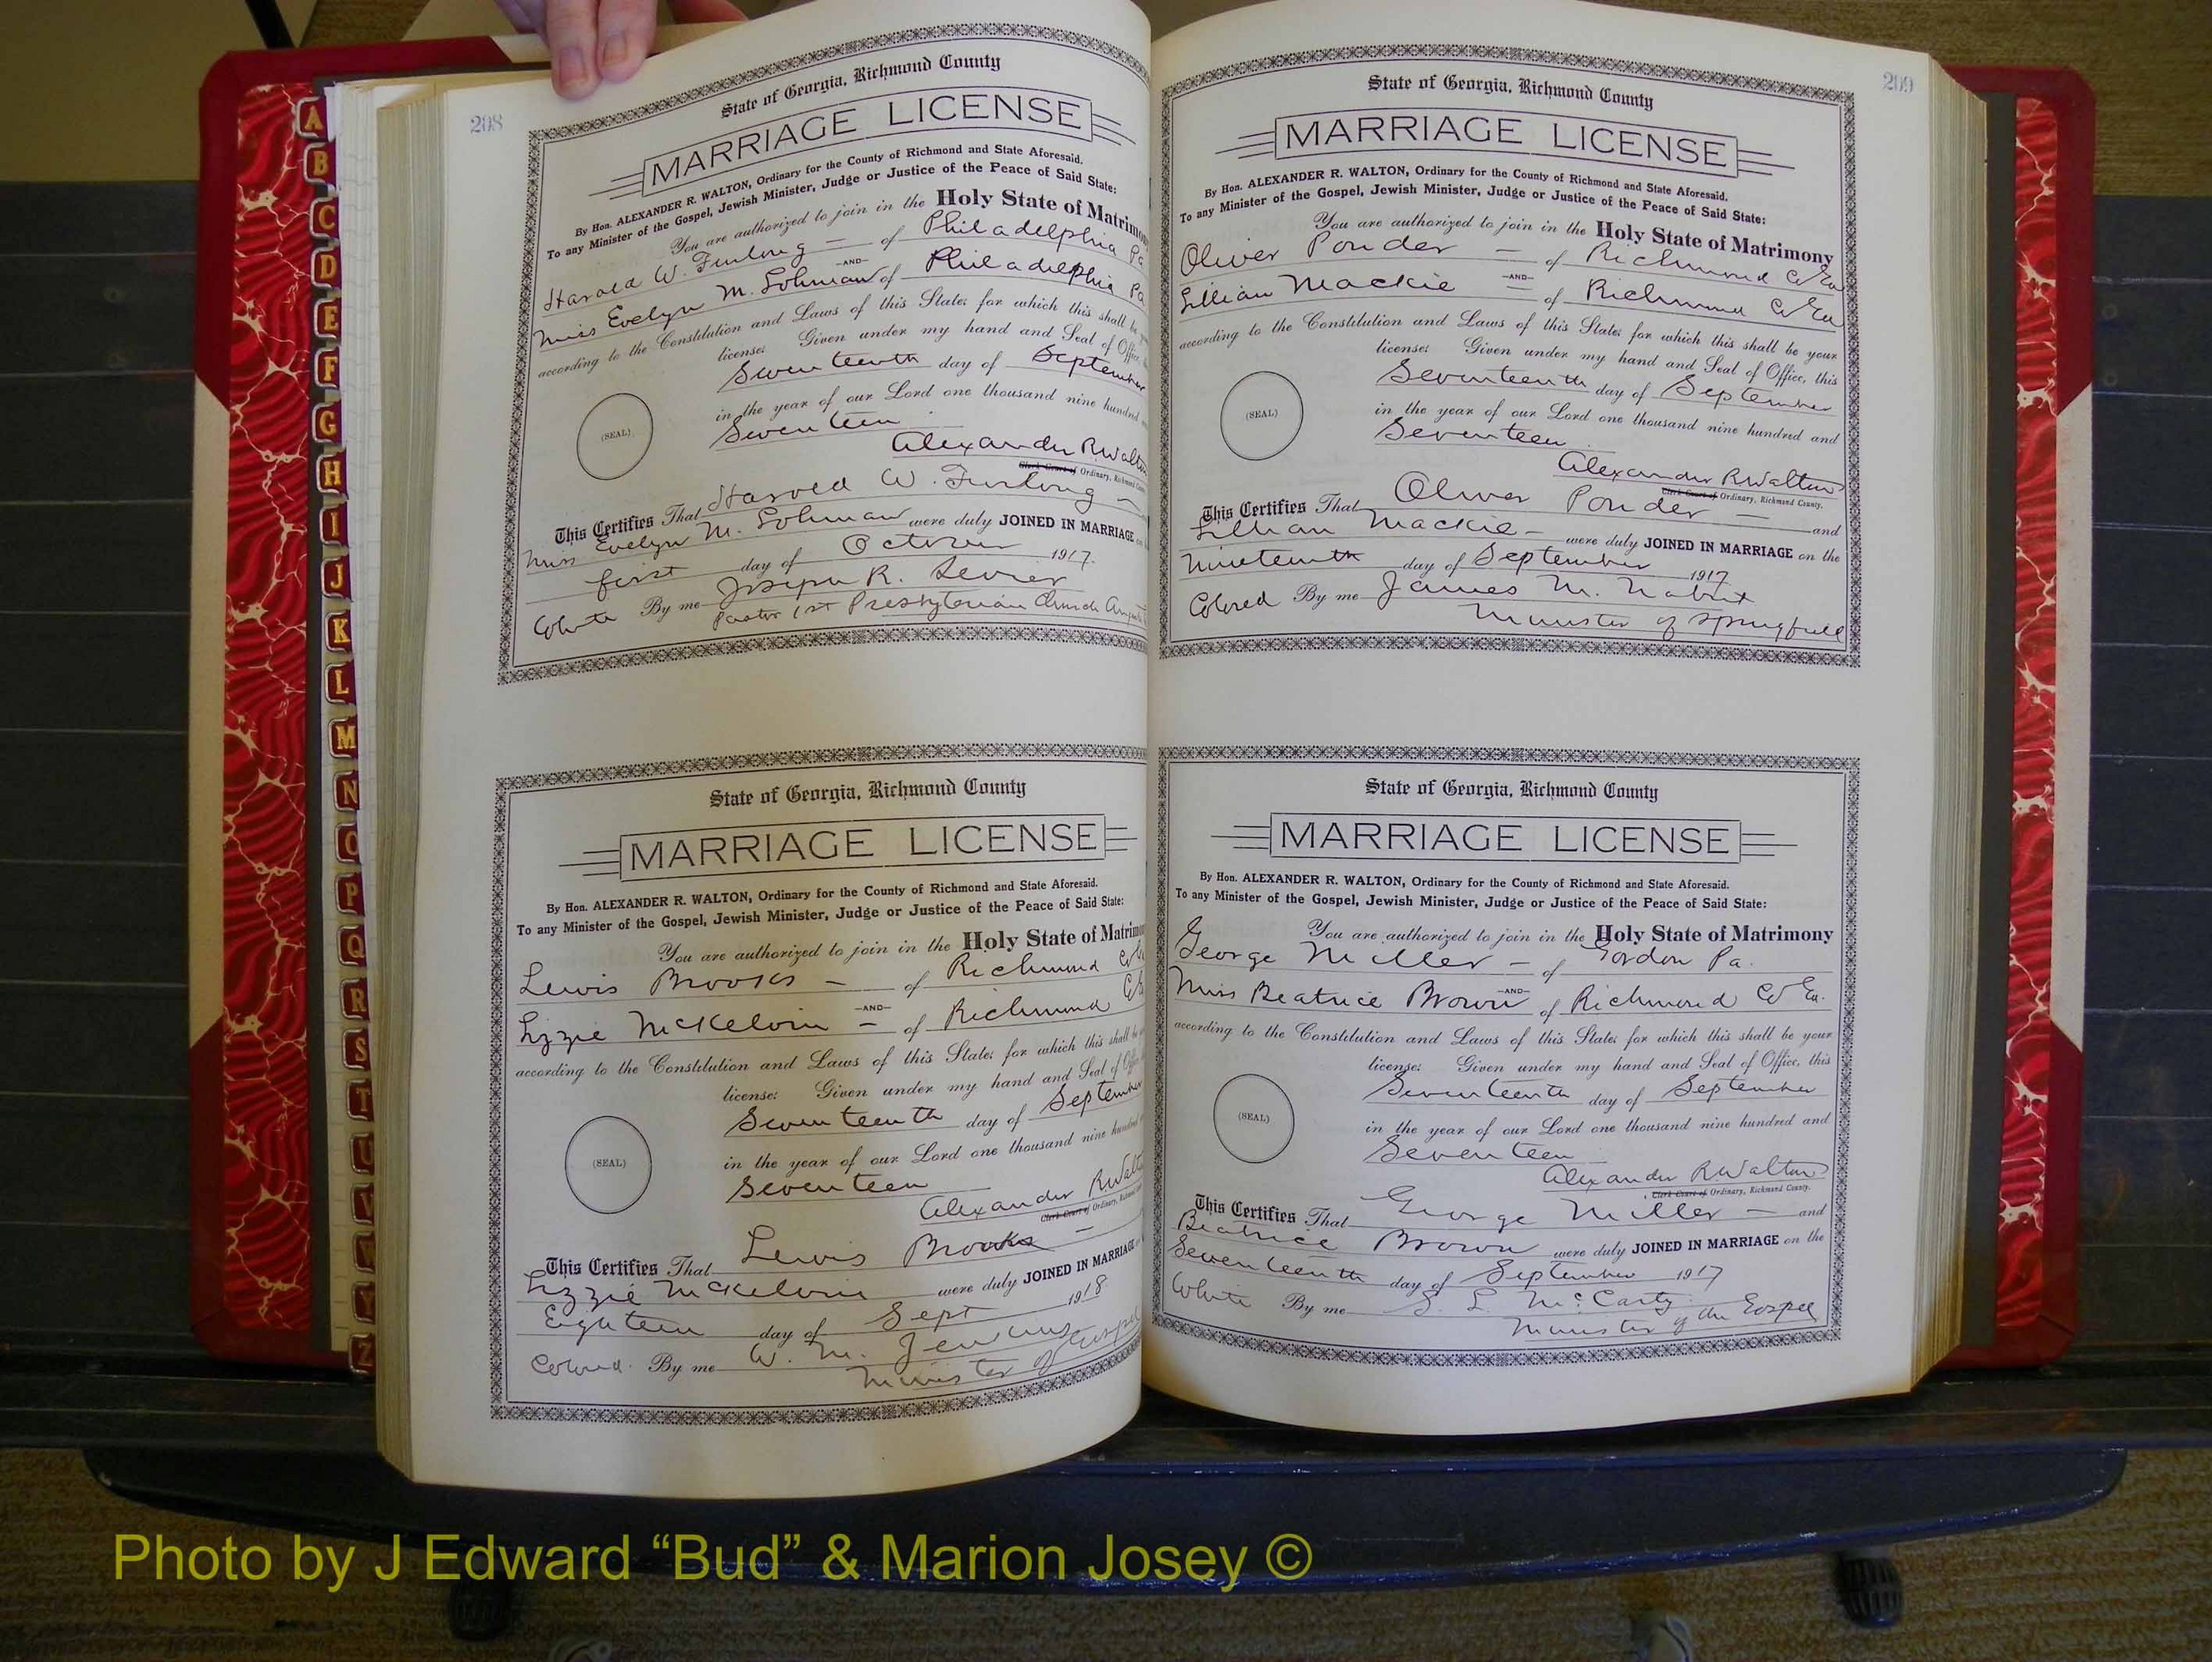 208
State of Georgia, Richmond County
MARRIAGE LICENSE
By Hon. ALEXANDER R. WALTON, Ordinary for the County of Richmond and State Aforesaid.
To any Minister of the Gospel, Jewish Minister, Judge or Justice of the Peace of Said State:
You are authorized to join in the Holy State of Matrimo
Harold W. Furlong — of Philadelphia Pa
—AND—
Miss Evelyn M. Lohman of Philadelphia Pa
according to the Constitution and Laws of this State; for which this shall be
license: Given under my hand and Seal of Office,
Seventeenth day of September
in the year of our Lord one thousand nine hundred
Seventeen
(SEAL)
Alexander R Walton
Clerk Court of Ordinary, Richmond County.
This Certifies That Harold W. Furlong —
Miss Evelyn M. Lohman were duly JOINED IN MARRIAGE on
first day of October 1917.
White By me Joseph R. Sevier
Pastor 1st Presbyterian Church
State of Georgia, Richmond County
MARRIAGE LICENSE
By Hon. ALEXANDER R. WALTON, Ordinary for the County of Richmond and State Aforesaid.
To any Minister of the Gospel, Jewish Minister, Judge or Justice of the Peace of Said State:
You are authorized to join in the Holy State of Matrimon
Lewis Brooks — of Richmond Co
—AND—
Lizzie McKelvin — of Richmond
according to the Constitution and Laws of this State; for which this shall be
license: Given under my hand and Seal of Office
Seventeenth day of September
in the year of our Lord one thousand nine hundred
Seventeen
(SEAL)
Alexander R Walton
Clerk Court of Ordinary, Richmond
This Certifies That Lewis Brooks —
Lizzie McKelvin were duly JOINED IN MARRIAGE
Eighteen day of Sept 1918.
Colored. By me W. M. Jenkins
Minister of Gospel
209
State of Georgia, Richmond County
MARRIAGE LICENSE
By Hon. ALEXANDER R. WALTON, Ordinary for the County of Richmond and State Aforesaid.
To any Minister of the Gospel, Jewish Minister, Judge or Justice of the Peace of Said State:
You are authorized to join in the Holy State of Matrimony
Oliver Ponder — of Richmond Co Ga
—AND—
Lillian Mackie — of Richmond Co Ga
according to the Constitution and Laws of this State; for which this shall be your
license: Given under my hand and Seal of Office, this
Seventeenth day of September
in the year of our Lord one thousand nine hundred and
Seventeen
(SEAL)
Alexander R Walton
Clerk Court of Ordinary, Richmond County.
This Certifies That Oliver Ponder — and
Lillian Mackie — were duly JOINED IN MARRIAGE on the
Nineteenth day of September 1917
Colored By me James M. Nabrit
Minister of Springfield
State of Georgia, Richmond County
MARRIAGE LICENSE
By Hon. ALEXANDER R. WALTON, Ordinary for the County of Richmond and State Aforesaid.
To any Minister of the Gospel, Jewish Minister, Judge or Justice of the Peace of Said State:
You are authorized to join in the Holy State of Matrimony
George Miller — of Gordon Pa.
—AND—
Miss Beatrice Brown of Richmond Co Ga.
according to the Constitution and Laws of this State; for which this shall be your
license: Given under my hand and Seal of Office, this
Seventeenth day of September
in the year of our Lord one thousand nine hundred and
Seventeen
(SEAL)
Alexander R Walton
Clerk Court of Ordinary, Richmond County.
This Certifies That George Miller — and
Beatrice Brown were duly JOINED IN MARRIAGE on the
Seventeenth day of September 1917
White By me S. L. McCarty
Minister of the Gospel
A
B
C
D
E
F
G
H
I
J
K
L
M
N
O
P
Q
R
S
T
U
V
W
Y
Z
Photo by J Edward “Bud” & Marion Josey ©